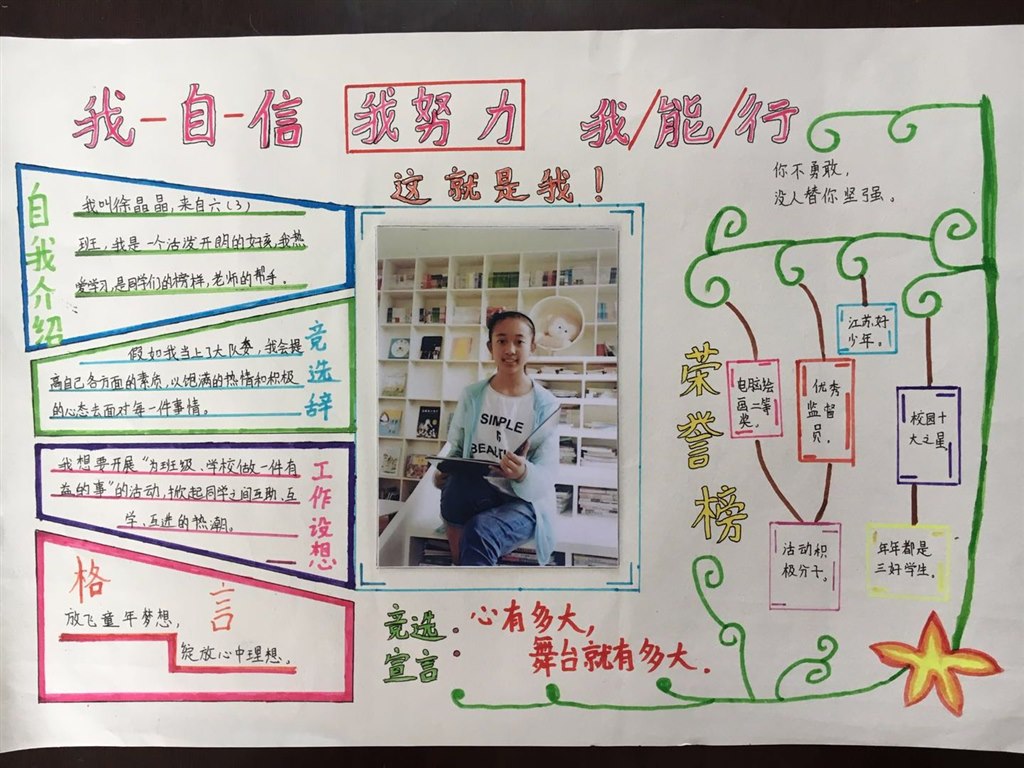 我-自-信 我努力 我/能/行
这就是我！
自我介绍
我叫徐晶晶，来自六（3）
班，我是一个活泼开朗的女孩，我热
爱学习，是同学们的榜样，老师的帮手。
竞选辞
假如我当上了大队委，我会提
高自己各方面的素质，以饱满的热情和积极
的心态去面对每一件事情。
工作设想
我想要开展“为班级、学校做一件有
益的事”的活动，掀起同学之间互助、互
学、互进的热潮。
格言
放飞童年梦想，
绽放心中理想。
SIMPLE
IS
BEAUTY
竞选宣言：
心有多大，
舞台就有多大．
你不勇敢，
没人替你坚强。
荣誉榜
电脑绘
画二等
奖。
优秀
监督
员，
江苏好
少年。
校园十
大之星。
活动积
极分子。
年年都是
三好学生。